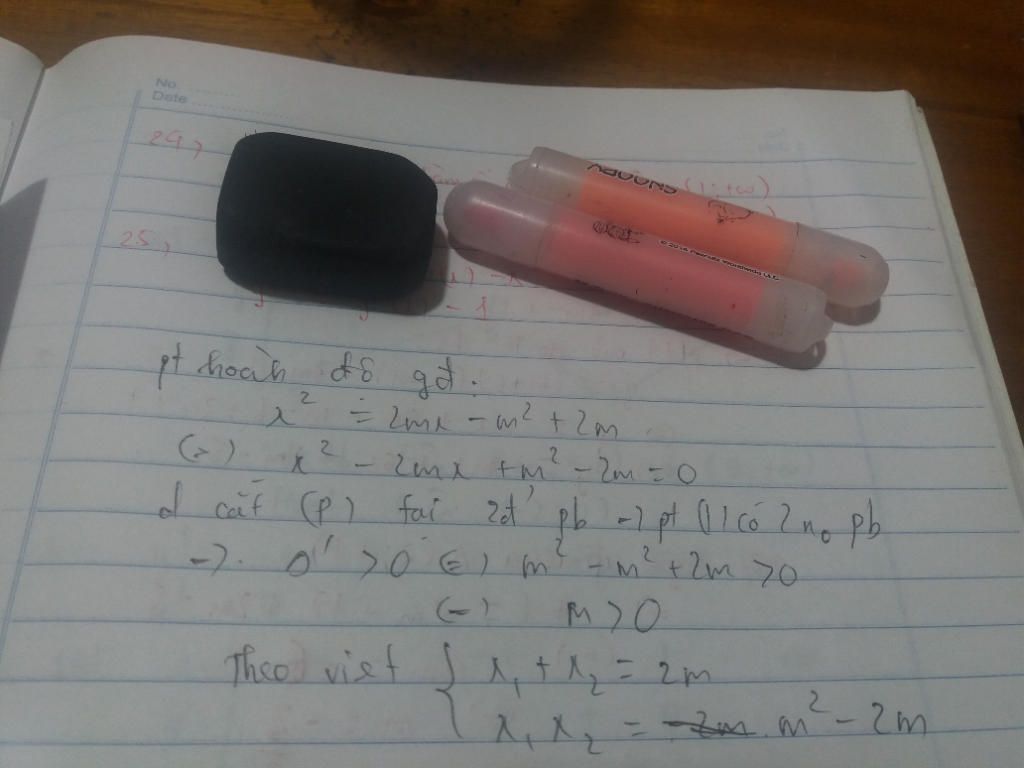 No.
Date
24,
SNOOPY
25,
- 1
pt hoành độ gđ.
x² = 2mx - m² + 2m
(=) x² - 2mx + m² - 2m = 0
d cắt (P) tại 2đ' pb -> pt (1) có 2 n₀ pb
->. Δ' > 0 (=) m² - m² + 2m > 0
(=) m > 0
Theo viet { x₁ + x₂ = 2m
x₁ x₂ = m² - 2m